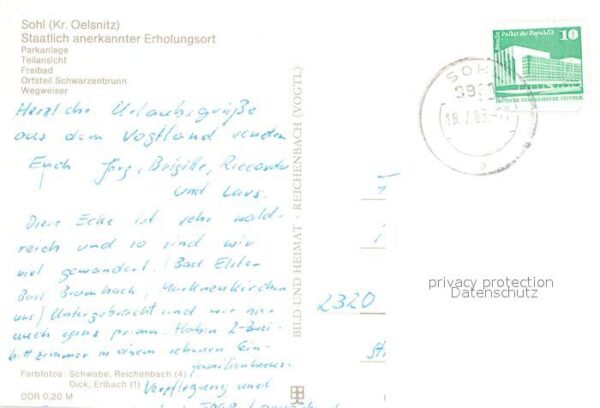 Sohl (Kr. Oelsnitz)
Staatlich anerkannter Erholungsort
Parkanlage
Teilansicht
Freibad
Ortsteil Schwarzenbrunn
Wegweiser
Herzliche Urlaubsgrüße
aus dem Vogtland senden
Euch Jörg, Brigitte, Riccardo
und Lars.
Diese Ecke ist sehr wald-
reich und so sind wir
viel gewandert. (Bad Elster
Bad Brambach, Markneukirchen
usw.) Untergebracht sind wir hier
auch ganz prima. Haben 2 Zwei-
bettzimmer in einem schönen Ein-
familienhaus.
Verpflegung und
Farbfotos: Schwabe, Reichenbach (4)
Dick, Erlbach (1)
DDR 0,20 M
BILD UND HEIMAT · REICHENBACH (VOGTL)
Berlin Palast der Republik
10
DEUTSCHE DEMOKRATISCHE REPUBLIK
SOHL
18.7.
a
2320
privacy protection
Datenschutz